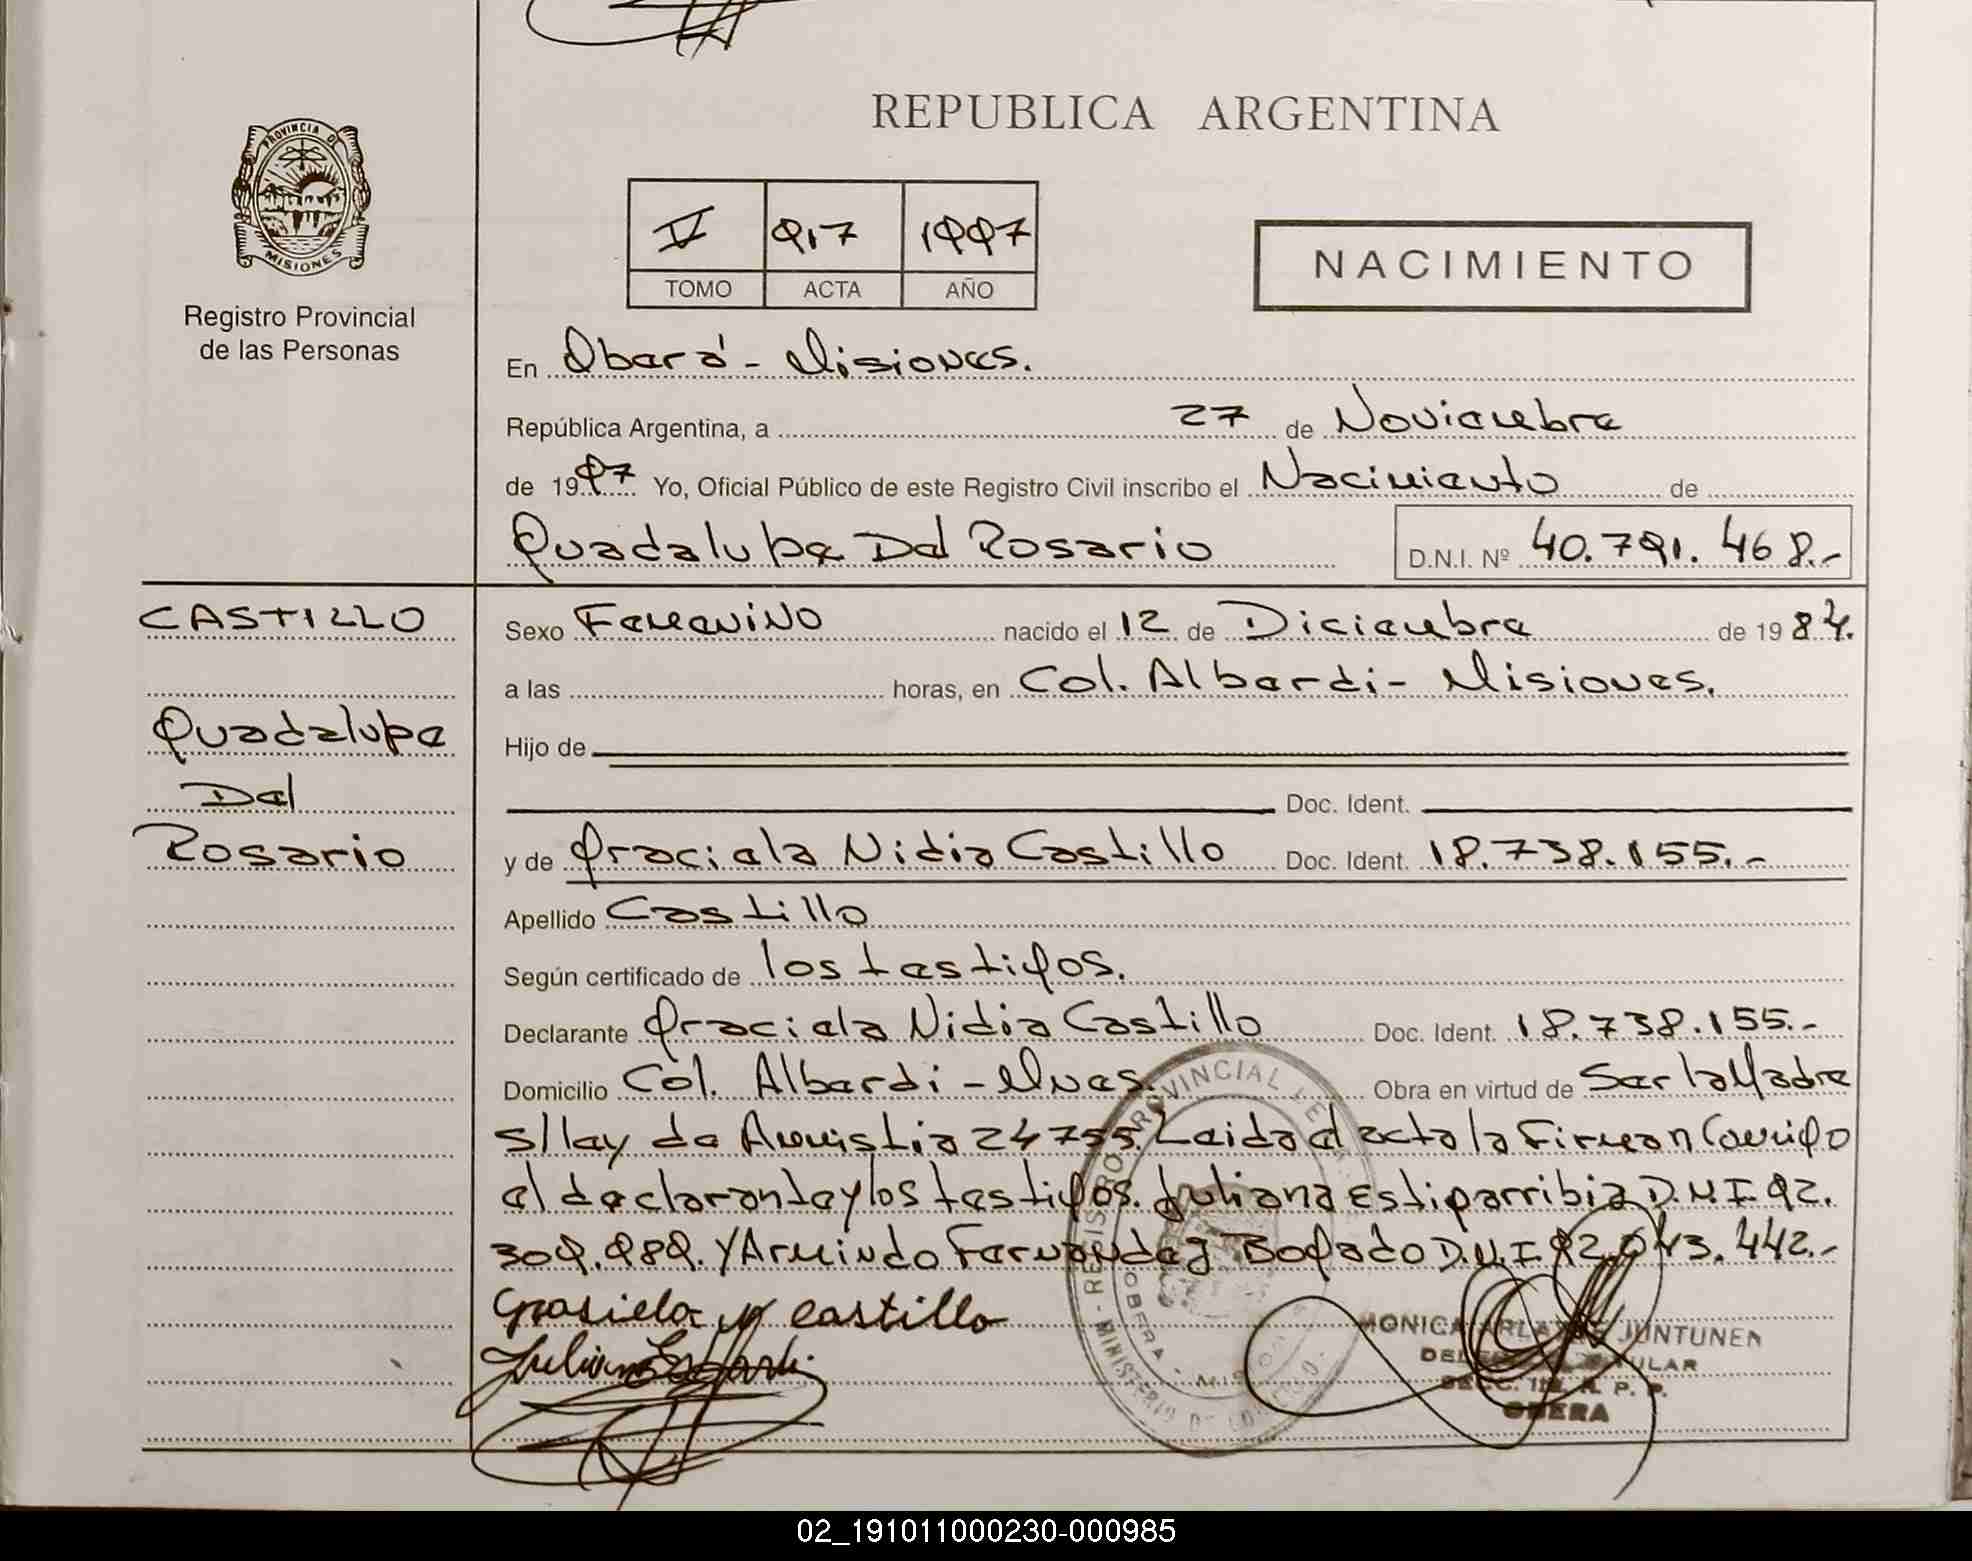 PROVINCIA DE
MISIONES
Registro Provincial
de las Personas
REPUBLICA ARGENTINA
V 917 1997
TOMO ACTA AÑO
NACIMIENTO
En Oberá - Misiones.
República Argentina, a 27 de Noviembre
de 1997 Yo, Oficial Público de este Registro Civil inscribo el Nacimiento de
Guadalupe Del Rosario D.N.I. Nº 40.791.468.-
CASTILLO
Guadalupe
Del
Rosario
Sexo Femenino nacido el 12 de Diciembre de 1984.
a las horas, en Col. Alberdi - Misiones.
Hijo de
Doc. Ident.
y de Graciela Nidia Castillo Doc. Ident. 18.738.155.-
Apellido Castillo
Según certificado de los testigos.
Declarante Graciela Nidia Castillo Doc. Ident. 18.738.155.-
Domicilio Col. Alberdi - Mnes. Obra en virtud de Ser la Madre
s/ley de Amnistia 24755. Leida el acta la firman Conmigo
el declarante y los testigos. Juliana Estigarribia D.N.I. 92.
309.989. Y Armindo Fernandez Bogado D.N.I. 92.043.442.-
Grasiela N castillo
REGISTRO PROVINCIAL DE LAS
OBERA - MISIONES
MINISTERIO DE GOBIERNO
MONICA JUNTUNEN
TITULAR
SECC. R. P. P.
OBERA
02_191011000230-000985